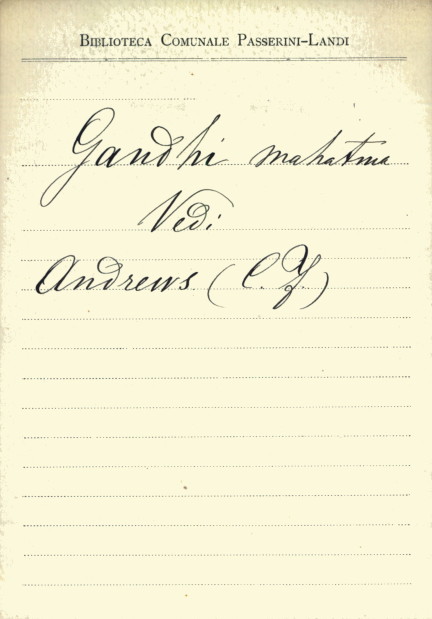 BIBLIOTECA COMUNALE PASSERINI-LANDI
Gandhi mahatma
Vedi
Andrews (C. F.)